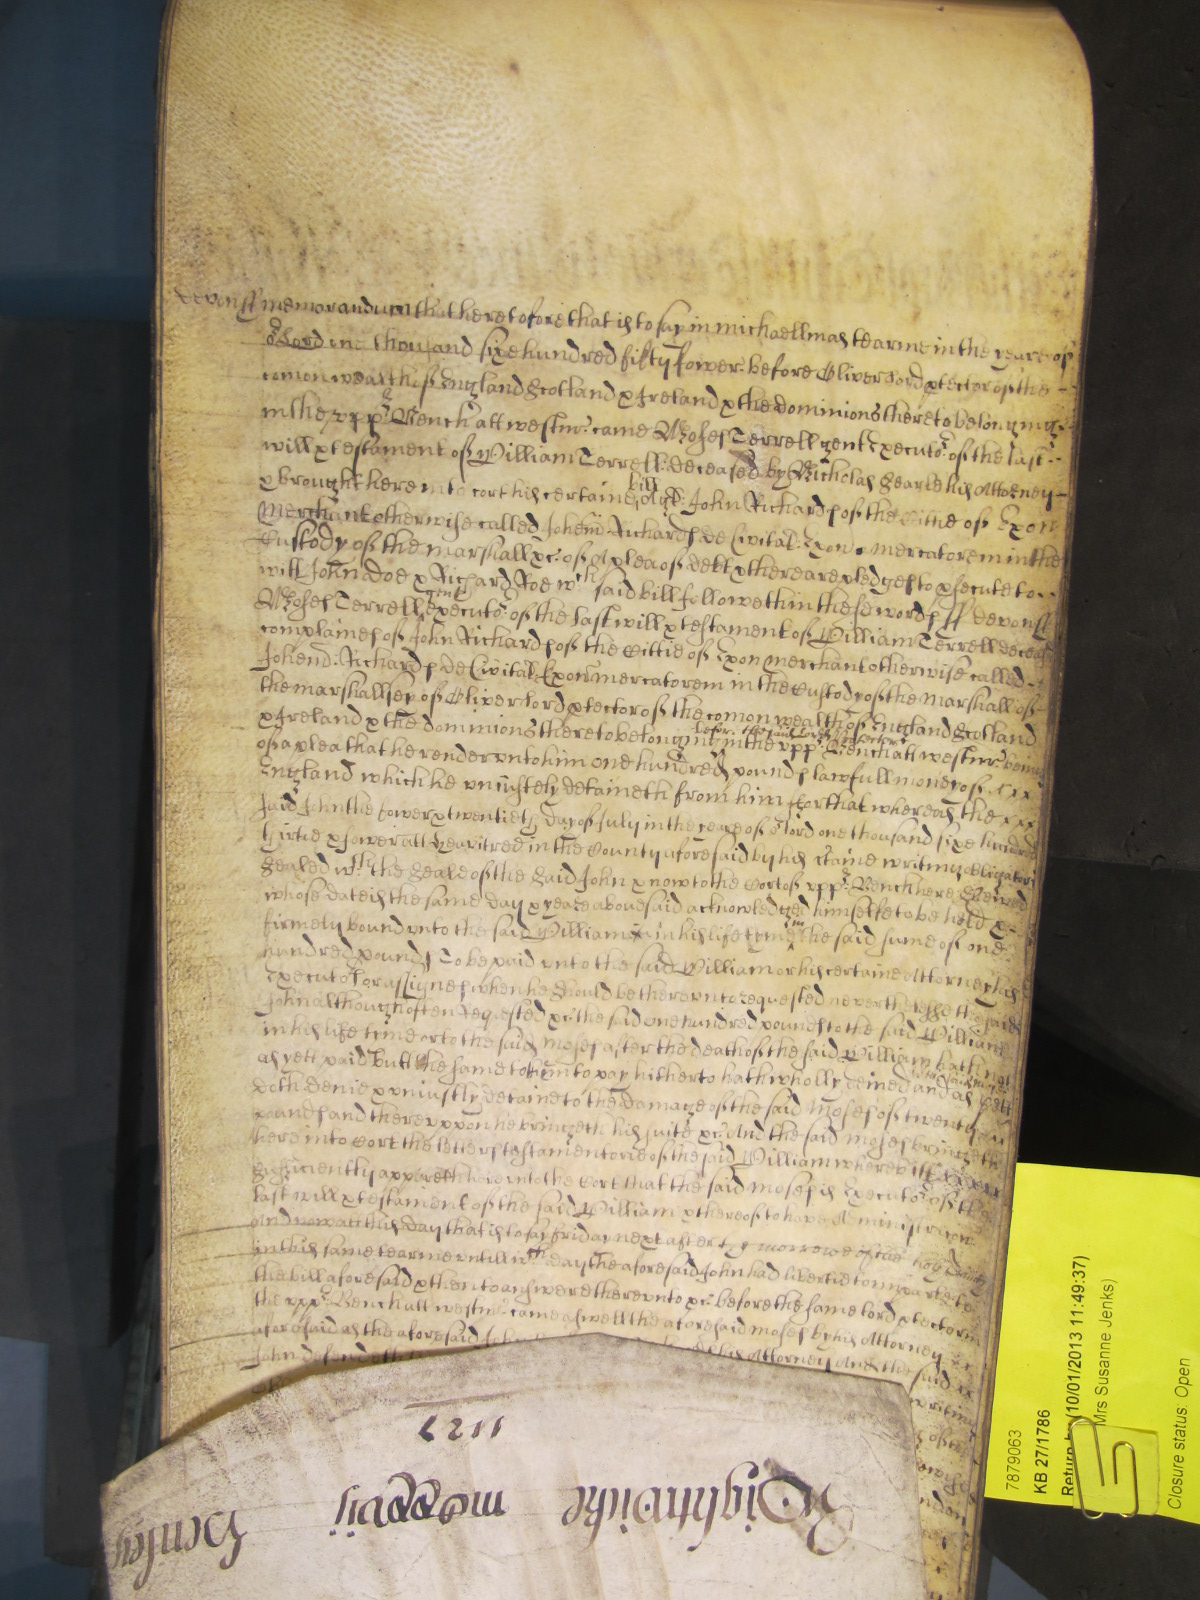 devonss memorandum that heretofore that is to say in michaellmas tearme in the yeare of
or Lord one thousand sixe hundred fifty fower before Oliver Lord ptector of the
comon wealth of England Scotland & Ireland & the dominions thereto belonging
in the vpp Bench att westmr came Moses Terrell gent Executor of the last
will & testament of William Terrell deceased by Nicholas Searle his Attorney
& brought here into cort his certaine bill agt John Richards of the Cittie of Exon
Merchant otherwise called Johem Richards de Civitat Exon mercatorem in the
Custody of the marshall &c of A plea of debt & there are pledges to psecute to
witt John Doe & Richard Roe wch said bill followeth in these words ss devonss
Moses Terrell gent Executor of the last will & testament of William Terrell deceased
complaines of John Richards of the Cittie of Exon merchant otherwise called
Johem Richards de Civitat Exon mercatorem in the Custody of the Marshall of
the marshallsey of Oliver Lord ptector of the comon wealth of England Scotland
& Ireland & the dominions thereto belonging before the said Lord ptector in the vpp Bench att westmr being
of a plea that he render vnto him one hundred pounds lawfull money of
England which he vniustly detaineth from him for that whereas the
said John the fower & twentieth day of July in the yeare of or Lord one thousand sixe hundred
thirtie & fower att Heavitree in the County aforesaid by his certaine writing obligatory
Sealed wth the Seale of the said John & now to the Cort of vpp Bench here shewed
whose date is the same day & yeare abovesaid acknowledged himselfe to be held &
firmely bound vnto the said William in his life tyme in the said sume of one
hundred pounds To be paid vnto the said William or his certaine Attorney his
Executors or assignes when he should be therevnto requested nevertheless the said
John although often requested &c the said one hundred pounds to the said William
in his life time or to the said Moses after the death of the said William hath not
as yett paid but the same to them to pay hitherto hath wholly denied and as yett
doth denie & vniustly detaine to the damage of the said Moses of twenty
pounds and therevpon he bringeth his suite &c And the said Moses bringeth
here into Cort the letters testamentorie of the said William whereby itt
sufficiently appeareth here vnto the Cort that the said Moses is Executor of the
last will & testament of the said William & thereof to have Administracon
And now att this day that is to say friday next after the morrowe of the holy Trinity
in this same tearme vntill wch day the aforesaid John had libertie to imparle to
the bill aforesaid & then to answere therevnto &c before the same lord ptector in
the vpp Bench att westmr came aswell the aforesaid Moses by his Attorney
aforesaid as the aforesaid John his Attorney And the said
John defendeth
writing
1127
Wightwicke mcccvij Henley
7879063
KB 27/1786
Return by (10/01/2013 11:49:37)
Mrs Susanne Jenks)
Closure status: Open